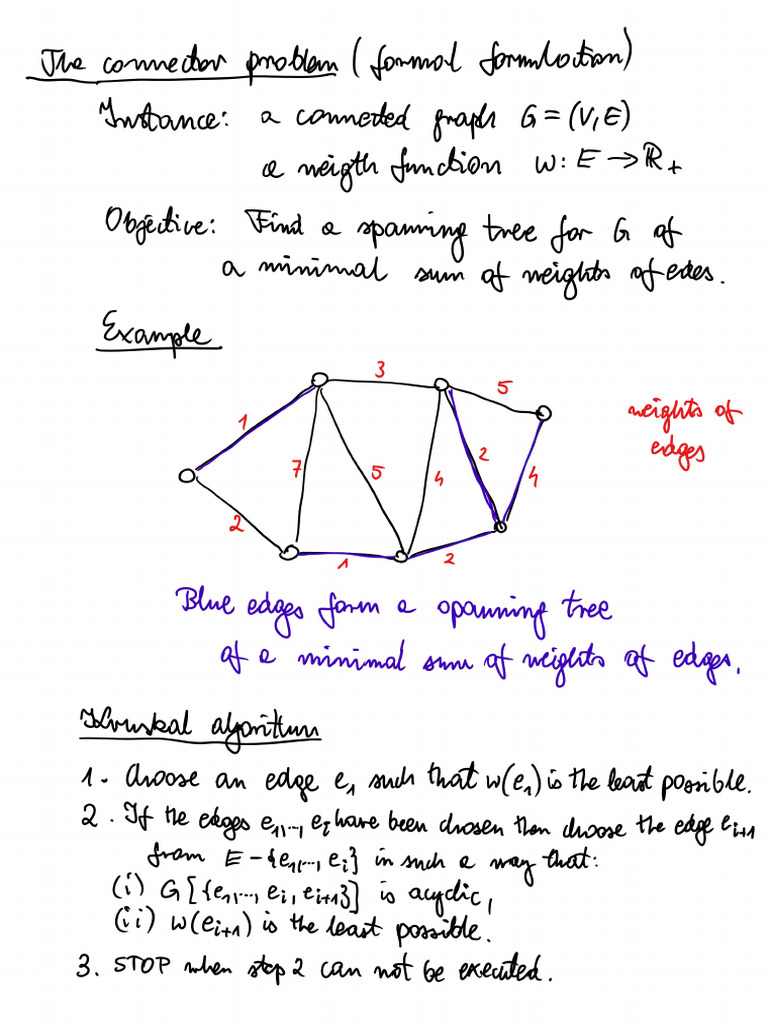 The connector problem (formal formulation)
Instance: a connected graph G = (V, E)
a weigth function w: E → ℝ₊
Objective: Find a spanning tree for G of
a minimal sum of weights of edes.
Example
3
5
1
7
5
4
2
4
2
1
2
weights of
edges
Blue edges form a spanning tree
of a minimal sum of weights of edges.
Kruskal algorithm
1. Choose an edge e₁ such that w(e₁) is the least possible.
2. If the edges e₁,..., eᵢ have been chosen then choose the edge eᵢ₊₁
from E - {e₁,..., eᵢ} in such a way that:
(i) G[{e₁,..., eᵢ, eᵢ₊₁}] is acyclic,
(ii) w(eᵢ₊₁) is the least possible.
3. STOP when step 2 can not be executed.